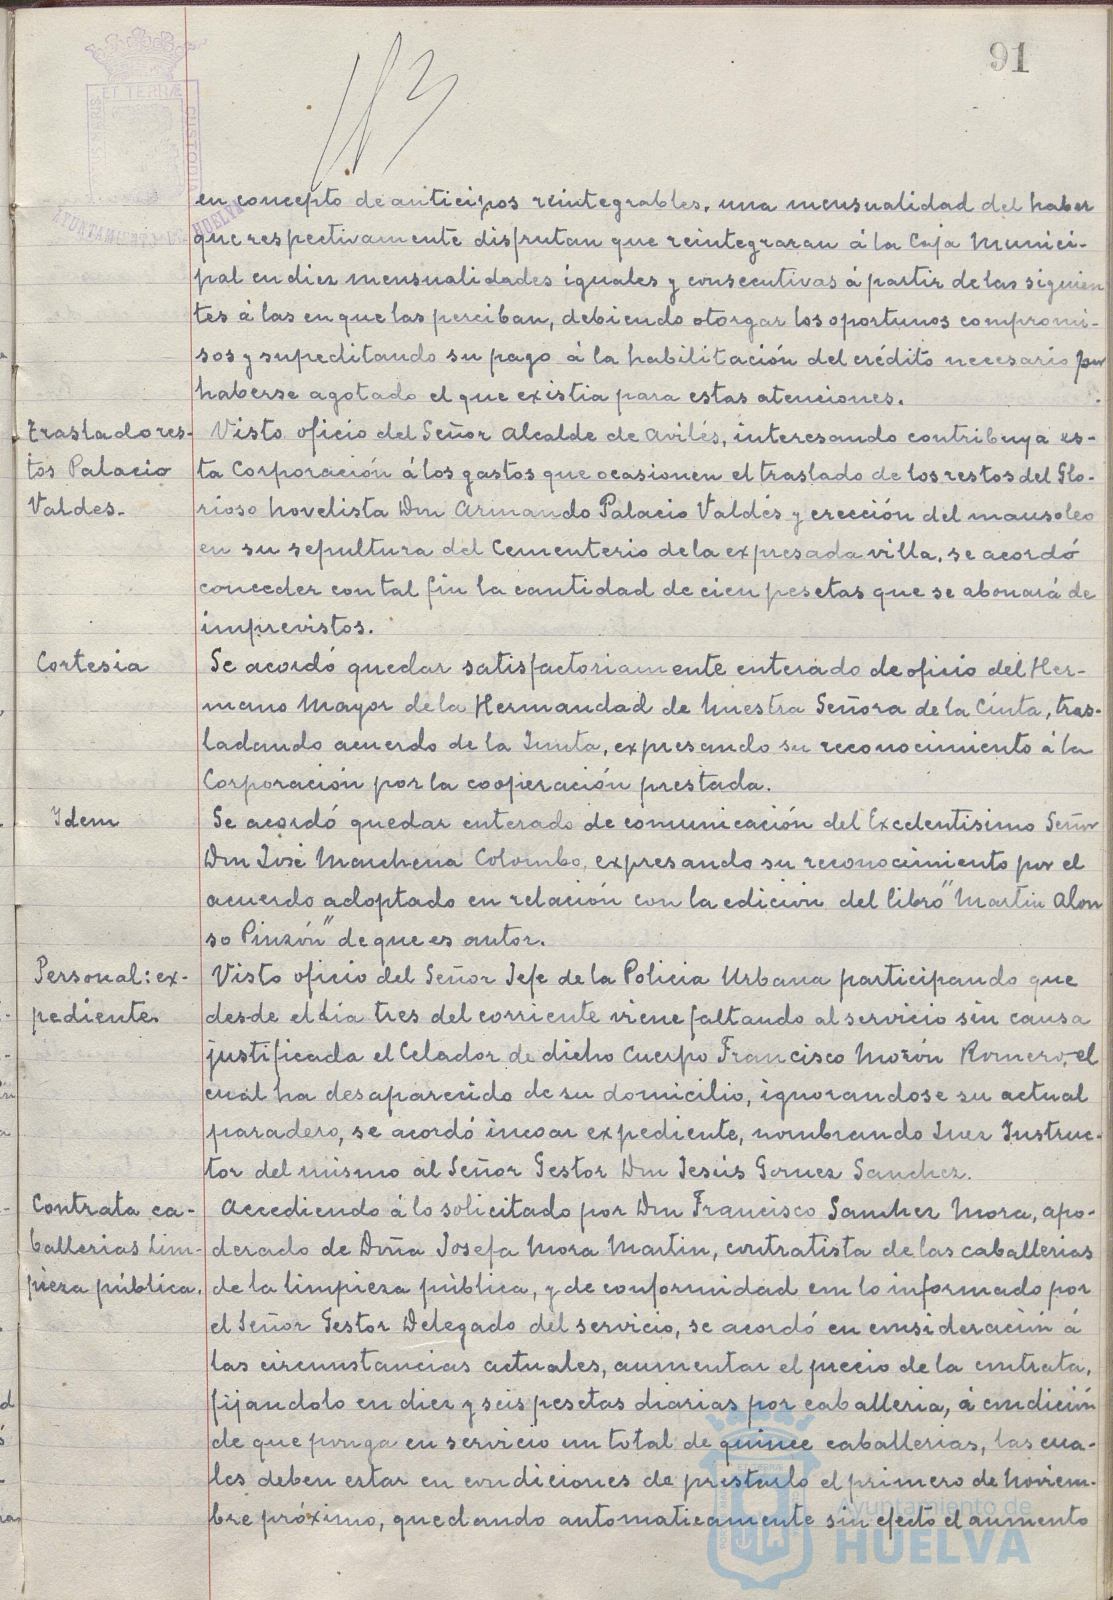 91
en concepto de anticipos reintegrables, una mensualidad del haber
que respectivamente disfrutan que reintegraran á la Caja Munici-
pal en diez mensualidades iguales y consecutivas á partir de las siguien
tes á las en que las perciban, debiendo otorgar los oportunos compromi-
sos y supeditando su pago á la habilitación del crédito necesario por
haberse agotado el que existia para estas atenciones.
Traslado res-
tos Palacio
Valdes.
Visto oficio del Señor Alcalde de Avilés, interesando contribuya es-
ta Corporación á los gastos que ocasionen el traslado de los restos del Glo-
rioso novelista Don Armando Palacio Valdés y erección del mausoleo
en su sepultura del Cementerio de la expresada villa, se acordó
conceder con tal fin la cantidad de cien pesetas que se abonará de
imprevistos.
Cortesia
Se acordó quedar satisfactoriamente enterado de oficio del Her-
mano Mayor de la Hermandad de Nuestra Señora de la Cinta, tras-
ladando acuerdo de la Junta, expresando su reconocimiento á la
Corporación por la cooperación prestada.
Idem
Se acordó quedar enterado de comunicación del Excelentisimo Señor
Don José Marchena Colombo, expresando su reconocimiento por el
acuerdo adoptado en relación con la edición del libro "Martin Alon
so Pinzón" de que es autor.
Personal: ex-
pediente.
Visto oficio del Señor Jefe de la Policia Urbana participando que
desde el dia tres del corriente viene faltando al servicio sin causa
justificada el Celador de dicho Cuerpo Francisco Morón Romero, el
cual ha desaparecido de su domicilio, ignorandose su actual
paradero, se acordó incoar expediente, nombrando Juez Instruc-
tor del mismo al Señor Gestor Don Jesús Gomez Sanchez.
Contrata ca-
ballerias Lim-
pieza pública.
Accediendo á lo solicitado por Don Francisco Sanchez Mora, apo-
derado de Doña Josefa Mora Martin, contratista de las caballerias
de la limpieza pública, y de conformidad con lo informado por
el Señor Gestor Delegado del servicio, se acordó en consideración á
las circunstancias actuales, aumentar el precio de la contrata,
fijandolo en diez y seis pesetas diarias por caballeria, á condición
de que ponga en servicio un total de quince caballerias, las cua-
les deben estar en condiciones de prestarlo el primero de Noviem-
bre próximo, quedando automaticamente sin efecto el aumento
Ayuntamiento de
HUELVA